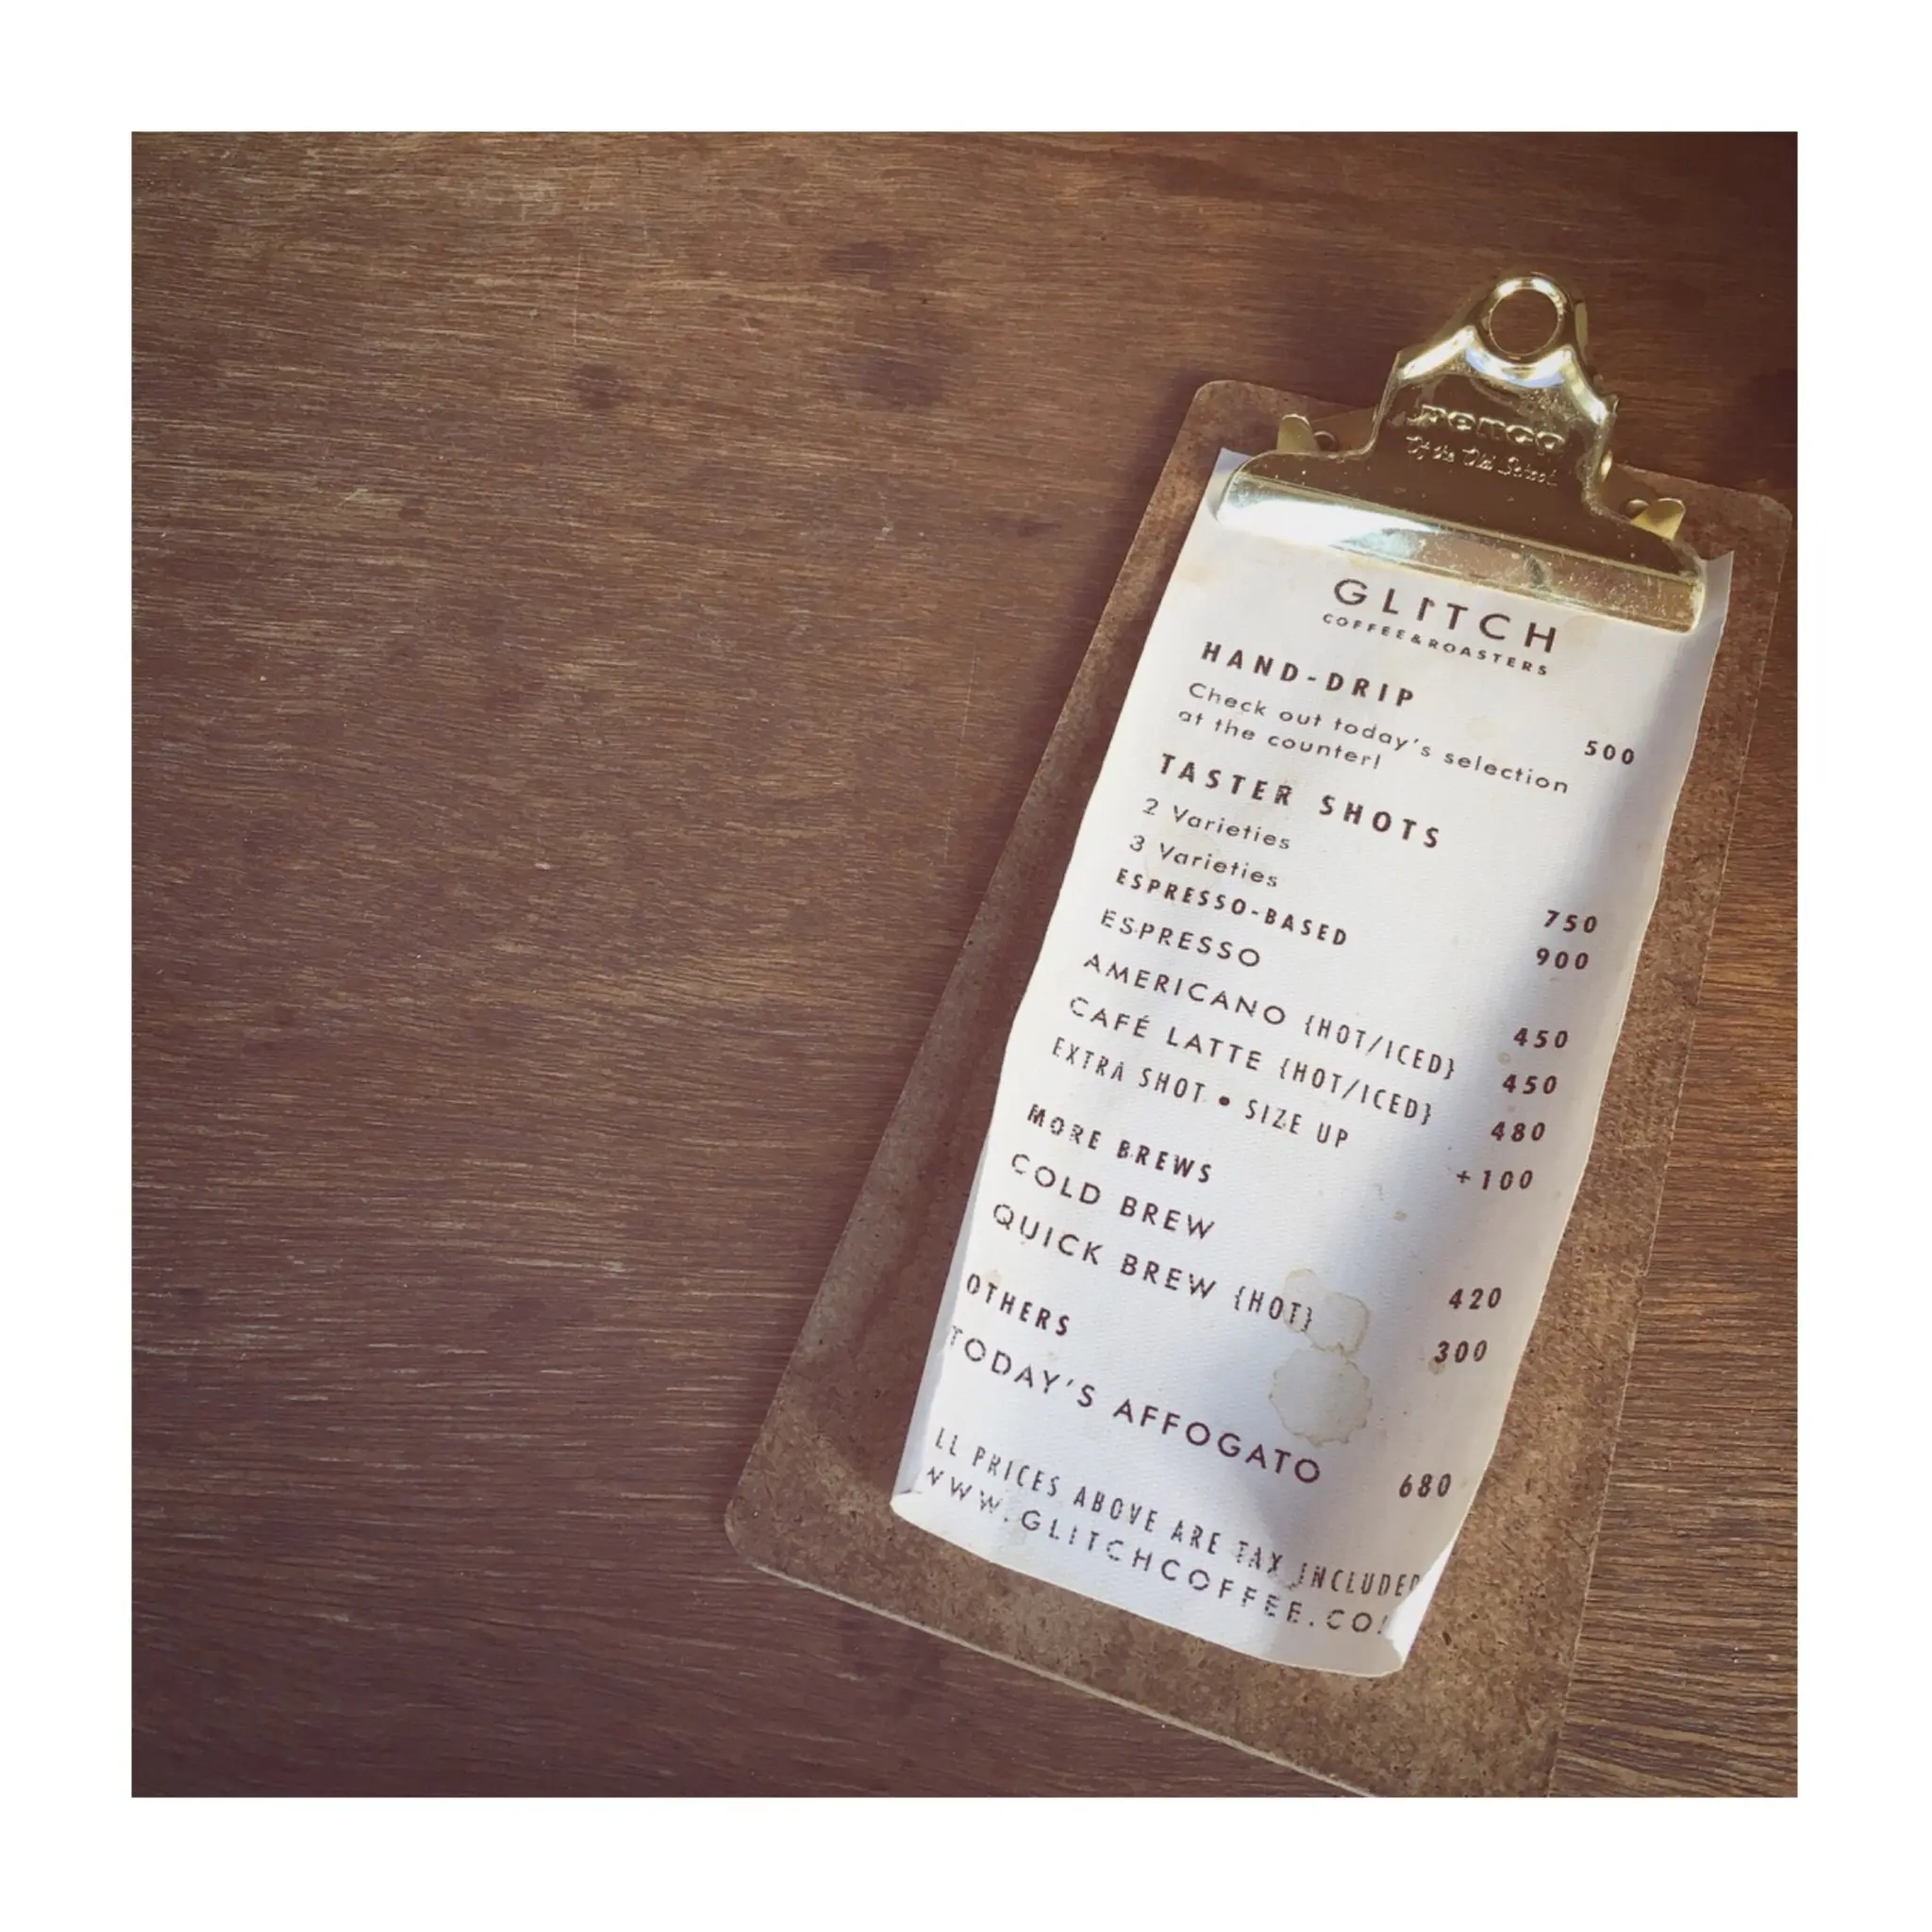 penco
Of the Old School
GLITCH
COFFEE&ROASTERS
HAND-DRIP
Check out today's selection 500
at the counter!
TASTER SHOTS
2 Varieties 750
3 Varieties 900
ESPRESSO-BASED
ESPRESSO 450
AMERICANO {HOT/ICED} 450
CAFÉ LATTE {HOT/ICED} 480
EXTRA SHOT • SIZE UP +100
MORE BREWS
COLD BREW 420
QUICK BREW {HOT} 300
OTHERS
TODAY'S AFFOGATO 680
LL PRICES ABOVE ARE TAX INCLUDED
WWW.GLITCHCOFFEE.CO